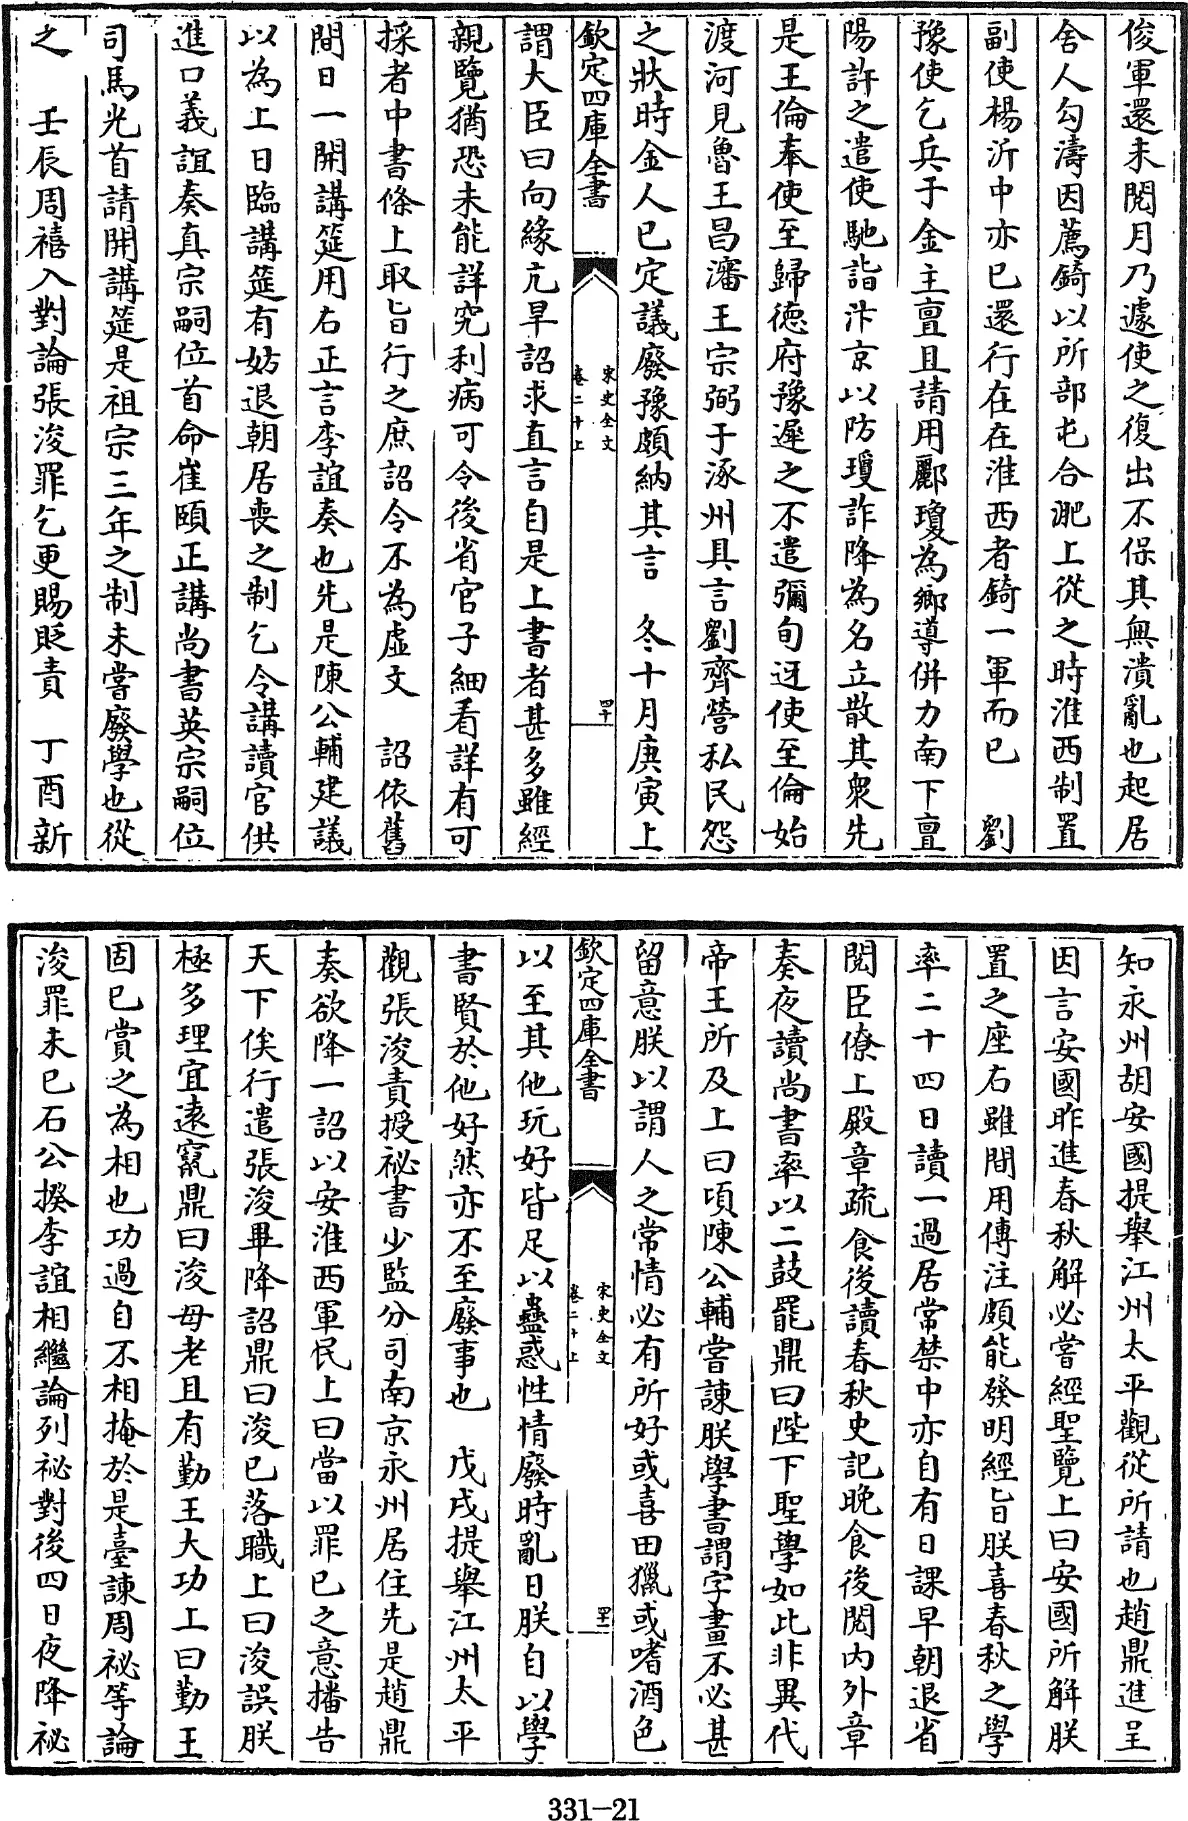 俊軍還未閱月乃遽使之復出不保其無潰亂也起居
舍人勾濤因薦錡以所部屯合淝上從之時淮西制置
副使楊沂中亦已還行在在淮西者錡一軍而已　劉
豫使乞兵于金主亶且請用酈瓊為鄉導併力南下亶
陽許之遣使馳詣汴京以防瓊詐降為名立散其衆先
是王倫奉使至歸徳府豫遲之不遣彌旬迓使至倫始
渡河見魯王昌瀋王宗弼于涿州具言劉齊營私民怨
之狀時金人已定議廢豫頗納其言　冬十月庚寅上
欽定四庫全書
宋史全文
卷二十上
四十
謂大臣曰向緣亢旱詔求直言自是上書者甚多雖經
親覽猶恐未能詳究利病可令後省官子細看詳有可
採者中書條上取旨行之庶詔令不為虛文　詔依舊
間日一開講筵用右正言李誼奏也先是陳公輔建議
以為上日臨講筵有妨退朝居喪之制乞令講讀官供
進口義誼奏真宗嗣位首命崔頤正講尚書英宗嗣位
司馬光首請開講筵是祖宗三年之制未嘗廢學也從
之　壬辰周禧入對論張浚罪乞更賜貶責　丁酉新
知永州胡安國提舉江州太平觀從所請也趙鼎進呈
因言安國昨進春秋解必嘗經聖覽上曰安國所解朕
置之座右雖間用傳注頗能發明經旨朕喜春秋之學
率二十四日讀一過居常禁中亦自有日課早朝退省
閱臣僚上殿章疏食後讀春秋史記晚食後閱內外章
奏夜讀尚書率以二鼓罷鼎曰陛下聖學如此非異代
帝王所及上曰頃陳公輔嘗諫朕學書謂字畫不必甚
留意朕以謂人之常情必有所好或喜田獵或嗜酒色
欽定四庫全書
宋史全文
卷二十上
四十一
以至其他玩好皆足以蠱惑性情廢時亂日朕自以學
書賢於他好然亦不至廢事也　戊戌提舉江州太平
觀張浚責授祕書少監分司南京永州居住先是趙鼎
奏欲降一詔以安淮西軍民上曰當以罪已之意播告
天下俟行遣張浚畢降詔鼎曰浚已落職上曰浚誤朕
極多理宜逺竄鼎曰浚母老且有勤王大功上曰勤王
固已賞之為相也功過自不相掩於是臺諫周祕等論
浚罪未已石公揆李誼相繼論列祕對後四日夜降祕
331-21